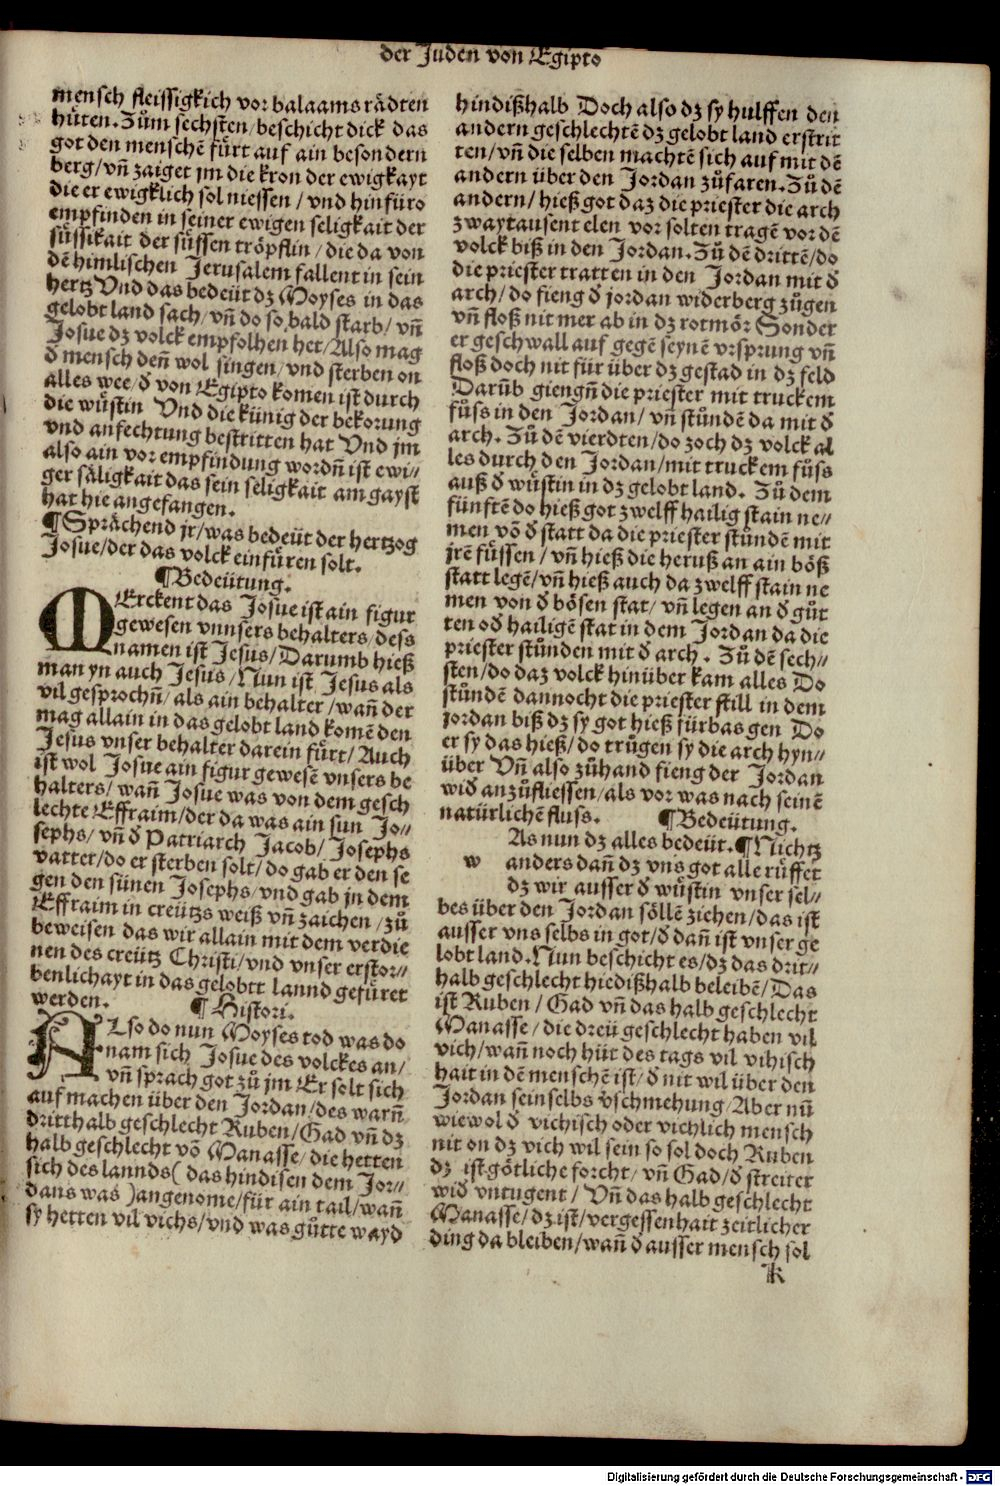 der Juden von Egipto
mensch fleissigkich vor balaams rädten
hüten. Zům sechsten/beschicht dick das
got den menschē fürt auf ain besondern
berg/vn̄ zaiget jm die kron der ewigkayt
die er ewigklich sol niessen/vnd hinfüro
empfinden in seiner ewigen seligkait der
süssikait der süssen tröpflin/die da von
dē himlischen Jerusalem fallent in sein
hertz Vnd das bedeüt dꝫ Moyses in das
gelobt land sach/vn̄ do so bald starb/vn̄
Josue dꝫ volck empfolhen het/Also mag
đ mensch den̄ wol singen/vnd sterben on
alles wee/đ von Egipto komen ist durch
die wüstin Vnd die künig der bekorung
vnd anfechtung bestritten hat Vnd jm
also ain vor empfindung wordn̄ ist ewi⸗
ger säligkait das sein seligkait am gayst
hat hie angefangen.
¶Sprächend jr/was bedeüt der hertzog
Josue/der das volck einfüren solt.
¶Bedeütung.
MErckent das Josue ist ain figur
gewesen vnnsers behalters/dess
namen ist Jesus/Darumb hieß
man yn auch Jesus/Nun ist Jesus als
vil gesprochn̄/als ain behalter/wan̄ der
mag allain in das gelobt land komē den
Jesus vnser behalter darein fürt/Auch
ist wol Josue ain figur gewesē vnsers be
halters/wan̄ Josue was von dem gesch
lechte Effraim/der da was ain sun Jo⸗
sephs/vn̄ đ Patriarch Jacob/Josephs
vatter/do er sterben solt/do gab er den se
gen den sünen Josephs/vnd gab jn dem
Effraim in creützs weiß vn̄ zaichen/zů
beweisen das wir allain mit dem verdie
nen des creütz Christi/vnd vnser erstor⸗
benlichayt in das gelobtt lannd gefüret
werden. ¶Histori.
ALso do nun Moyses tod was do
nam sich Josue des volckes an/
vn̄ sprach got zů jm Er solt sich
auf machen über den Jordan/des warn̄
dritthalb geschlecht Ruben/Gad vn̄ dꝫ
halb geschlecht vō Manasse/die hetten
sich des lannds(das hindisen dem Jor⸗
dans was)angenome/für ain tail/wan̄
sy hetten vil vichs/vnd was gůtte wayd
hindißhalb Doch also dꝫ sy hulffen den
andern geschlechtē dꝫ gelobt land erstrit
ten/vn̄ die selben machtē sich auf mit dē
andern über den Jordan zůfaren. Zů dē
andern/hieß got daz die priester die arch
zwaytausent elen vor solten tragē vor dē
volck biß in den Jordan. Zů dē drittē/do
die priester tratten in den Jordan mit đ
arch/do fieng đ jordan widerberg zůgen
vn̄ floß nit mer ab in dꝫ rotmör Sonder
er geschwall auf gegē seynē vrsprung vn̄
floß doch nit für über dꝫ gestad in dꝫ feld
Darūb giengn̄ die priester mit truckem
fůss in den Jordan/vn̄ stůndē da mit đ
arch. Zů dē vierdten/do zoch dꝫ volck al
les durch den Jordan/mit truckem fůss
auß đ wüstin in dꝫ gelobt land. Zů dem
fünftē do hieß got zwelff hailig stain ne⸗
men vō đ statt da die priester stůndē mit
jrē füssen/vn̄ hieß die heruß an ain böß
statt legē/vn̄ hieß auch da zwelff stain ne
men von đ bösen stat/vn̄ legen an đ gůt
ten ođ hailigē stat in dem Jordan da die
priester stůnden mit đ arch. Zů dē sech⸗
sten/do daz volck hinüber kam alles Do
stůndē dannocht die priester still in dem
jordan biß dꝫ sy got hieß fürbas gen Do
er sy das hieß/do trůgen sy die arch hyn⸗
über Vn̄ also zůhand fieng der Jordan
wiđ anzůfliessen/als vor was nach seinē
natürlichē fluss. ¶Bedeütung.
w As nun dꝫ alles bedeüt. ¶Nichtz
anders dan̄ dꝫ vns got alle rüffet
dꝫ wir ausser đ wüstin vnser sel⸗
bes über den Jordan söllē ziehen/das ist
ausser vns selbs in got/đ dan̄ ist vnser ge
lobt land. Nun beschicht es/dꝫ das drit⸗
halb geschlecht hiedißhalb beleibē/Das
ist Ruben/Gad vn̄ das halb geschlecht
Manasse/die dreü geschlecht haben vil
vich/wan̄ noch hüt des tags vil vihisch
hait in dē menschē ist/đ nit wil über den
Jordan sein selbs vschmehung/Aber nū
wiewol đ vichisch oder vichlich mensch
nit on dꝫ vich wil sein so sol doch Ruben
dꝫ ist götliche forcht/vn̄ Gad/đ streiter
wiđ vntugent/Vn̄ das halb geschlecht
Manasse/dꝫ ist/vergessenhait zeitlicher
ding da bleiben/wan̄ đ ausser mensch sol
k
Digitalisierung gefördert durch die Deutsche Forschungsgemeinschaft - DFG